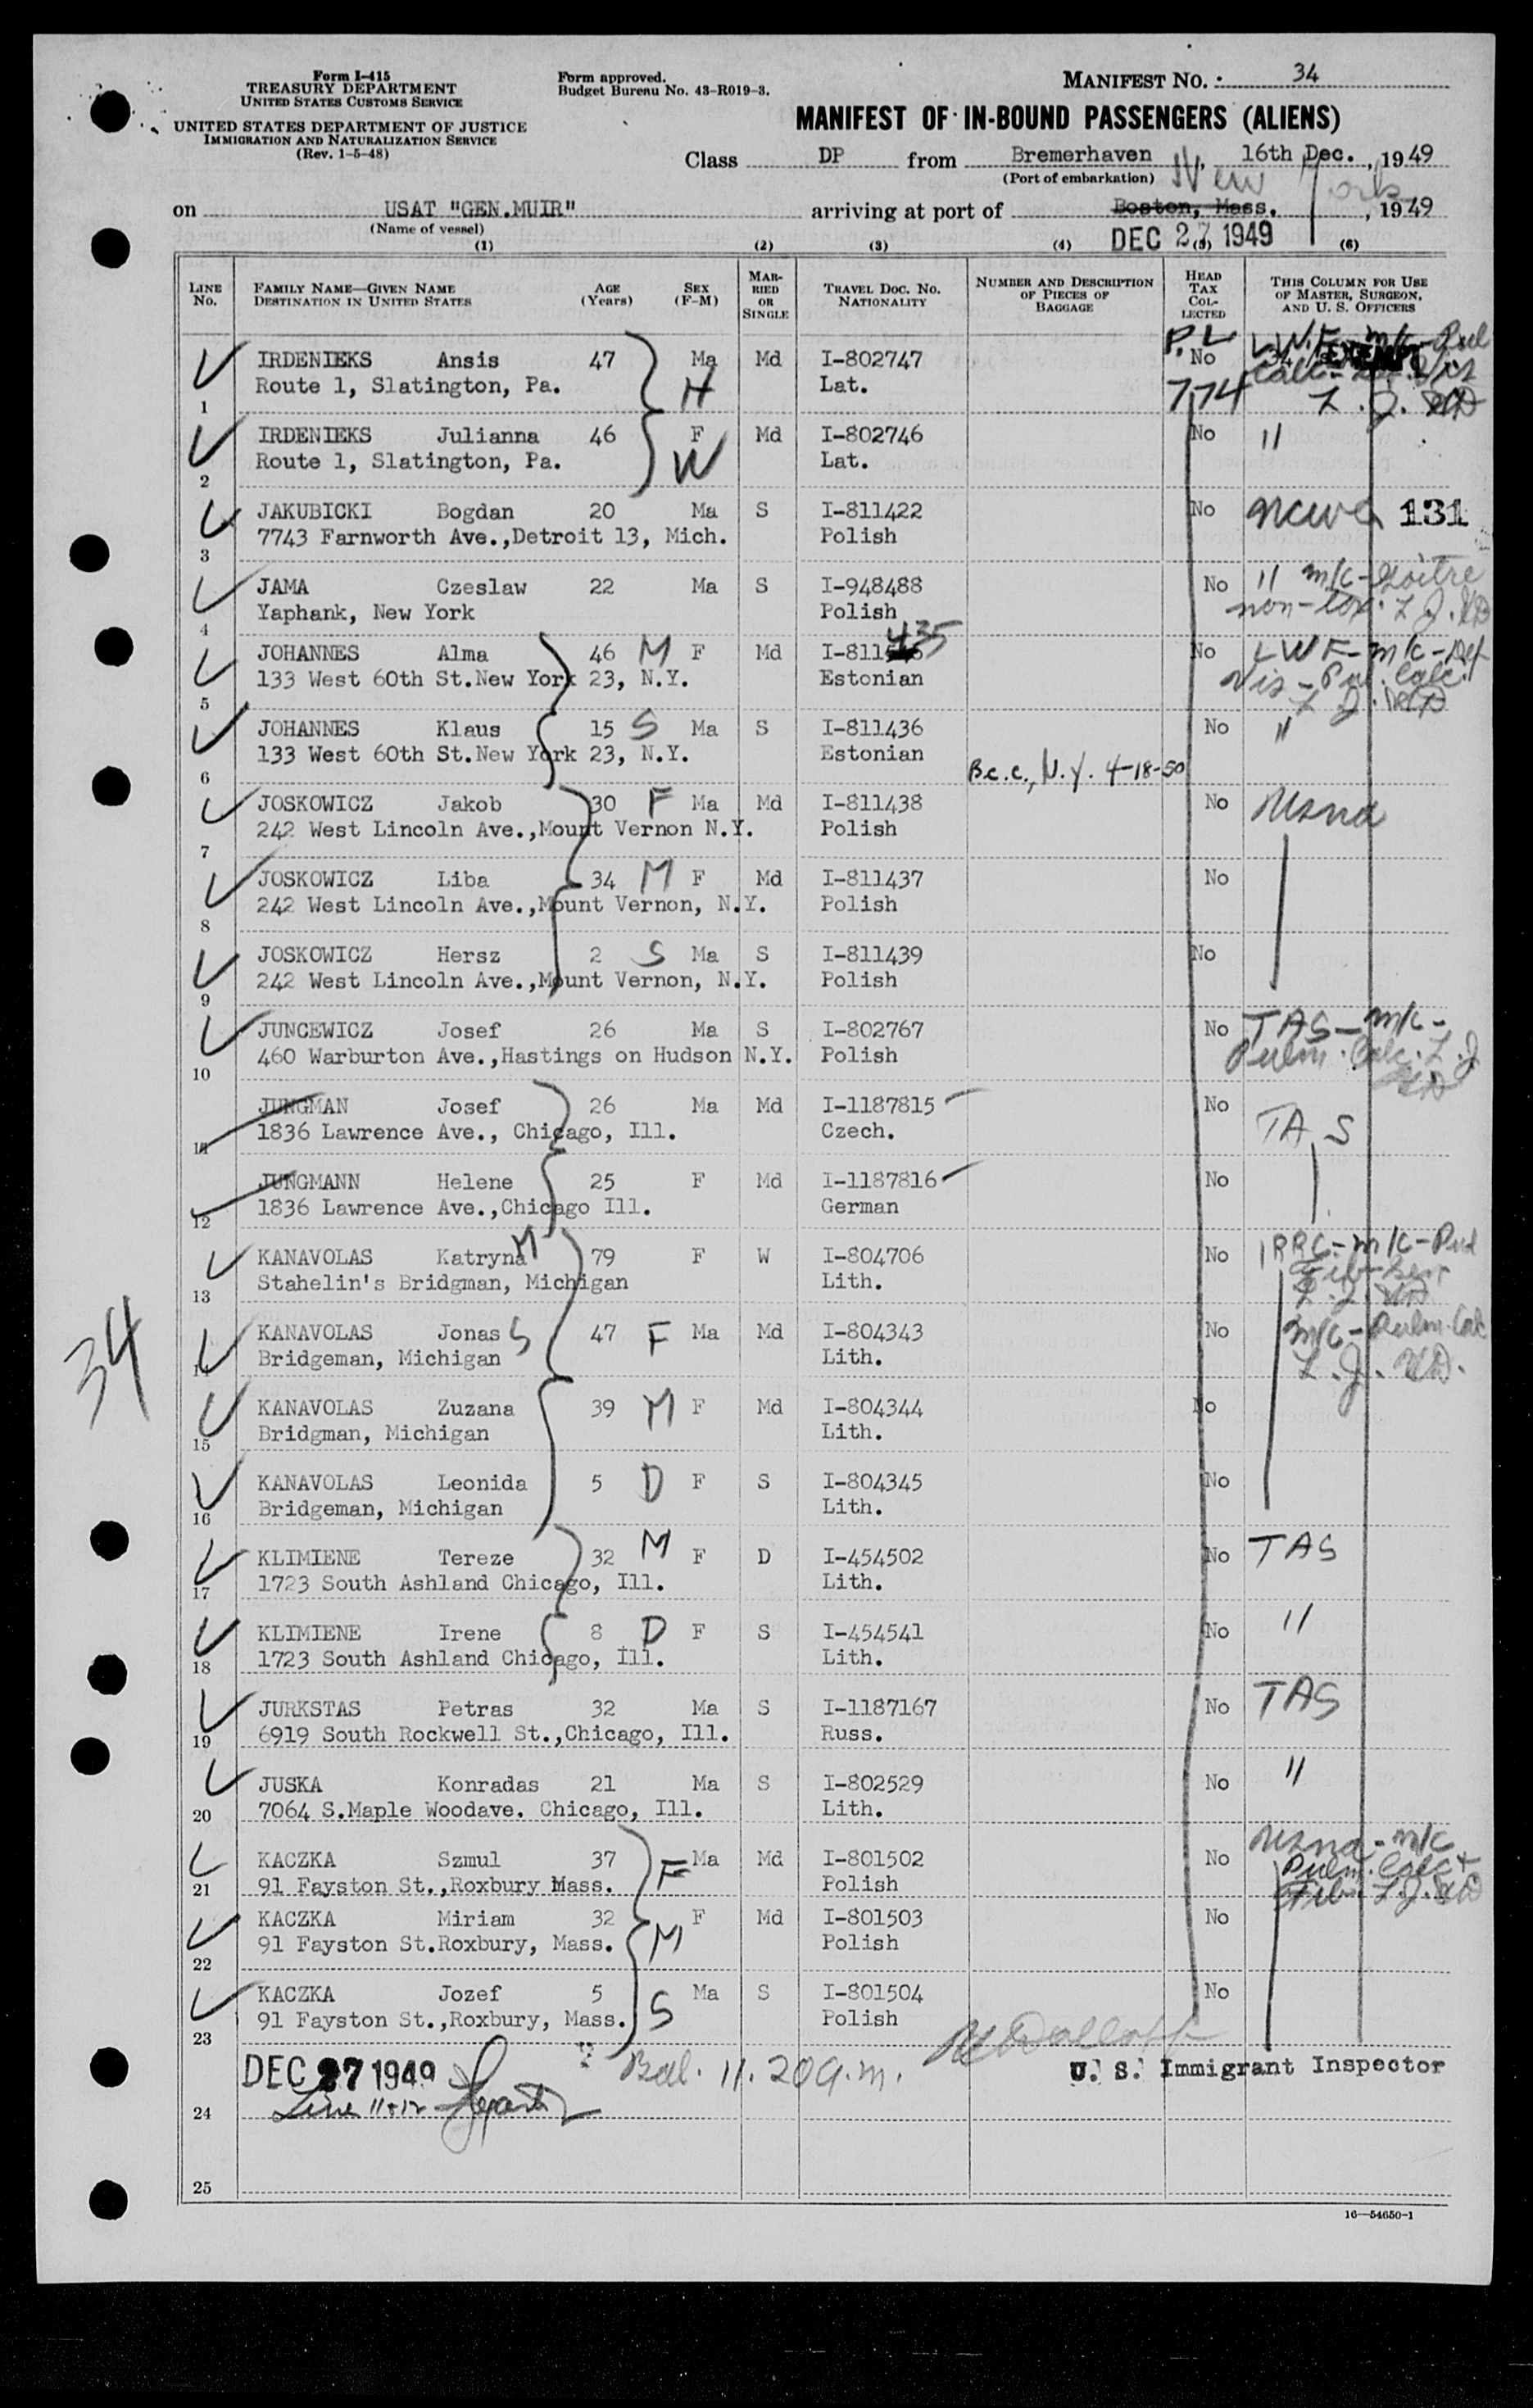 Form I-415
TREASURY DEPARTMENT
UNITED STATES CUSTOMS SERVICE
UNITED STATES DEPARTMENT OF JUSTICE
IMMIGRATION AND NATURALIZATION SERVICE
(Rev. 1-5-48)
Form approved.
Budget Bureau No. 43-R019-3.
MANIFEST NO. 34
MANIFEST OF IN-BOUND PASSENGERS (ALIENS)
Class DP from Bremerhaven, 16th Dec., 1949
(Port of embarkation)
New York
on USAT "GEN.MUIR" arriving at port of Boston, Mass., 1949
(Name of vessel)
DEC 27 1949
(1) (2) (3) (4) (5) (6)
LINE No. FAMILY NAME—GIVEN NAME DESTINATION IN UNITED STATES AGE (Years) SEX (F-M) MARRIED OR SINGLE TRAVEL DOC. No. NATIONALITY NUMBER AND DESCRIPTION OF PIECES OF BAGGAGE HEAD TAX COLLECTED THIS COLUMN FOR USE OF MASTER, SURGEON, AND U. S. OFFICERS
P.L. LWF-m/c-Pul
IRDENIEKS Ansis 47 Ma Md I-802747 No EXEMPT
1 Route 1, Slatington, Pa. H Lat. 774 L.J. MD
IRDENIEKS Julianna 46 F Md I-802746 No "
2 Route 1, Slatington, Pa. W Lat.
JAKUBICKI Bogdan 20 Ma S I-811422 No NCWC 131
3 7743 Farnworth Ave.,Detroit 13, Mich. Polish
JAMA Czeslaw 22 Ma S I-948488 No " m/c-Goitre
4 Yaphank, New York Polish non-tox. L.J. MD
JOHANNES Alma 46 M F Md I-811435 No LWF-m/c-Def
5 133 West 60th St.New York 23, N.Y. Estonian Vis-Pul. Calc.
L.J. MD
JOHANNES Klaus 15 S Ma S I-811436 No "
6 133 West 60th St.New York 23, N.Y. Estonian
B.c.c., N.Y. 4-18-50
JOSKOWICZ Jakob 30 F Ma Md I-811438 No Usna
7 242 West Lincoln Ave.,Mount Vernon N.Y. Polish
JOSKOWICZ Liba 34 M F Md I-811437 No
8 242 West Lincoln Ave.,Mount Vernon, N.Y. Polish
JOSKOWICZ Hersz 2 S Ma S I-811439 No
9 242 West Lincoln Ave.,Mount Vernon, N.Y. Polish
JUNCEWICZ Josef 26 Ma S I-802767 No TAS-m/c-
10 460 Warburton Ave.,Hastings on Hudson N.Y. Polish Pulm. Calc. L.J.
MD
JUNGMAN Josef 26 Ma Md I-1187815 No TAS
11 1836 Lawrence Ave., Chicago, Ill. Czech.
JUNGMANN Helene 25 F Md I-1187816 No
12 1836 Lawrence Ave.,Chicago Ill. German
KANAVOLAS Katryna M 79 F W I-804706 No RRC-m/c-Pul
13 Stahelin's Bridgman, Michigan Lith. L.J. MD
KANAVOLAS Jonas S 47 F Ma Md I-804343 No m/c-Pulm.Calc
14 Bridgeman, Michigan Lith. L.J. MD.
KANAVOLAS Zuzana 39 M F Md I-804344 No
15 Bridgman, Michigan Lith.
KANAVOLAS Leonida 5 D F S I-804345 No
16 Bridgeman, Michigan Lith.
KLIMIENE Tereze 32 M F D I-454502 No TAS
17 1723 South Ashland Chicago, Ill. Lith.
KLIMIENE Irene 8 D F S I-454541 No "
18 1723 South Ashland Chicago, Ill. Lith.
JURKSTAS Petras 32 Ma S I-1187167 No TAS
19 6919 South Rockwell St.,Chicago, Ill. Russ.
JUSKA Konradas 21 Ma S I-802529 No "
20 7064 S.Maple Woodave. Chicago, Ill. Lith.
KACZKA Szmul 37 F Ma Md I-801502 No Usna-m/c
21 91 Fayston St.,Roxbury Mass. Polish Pulm. Calc +
Fib. L.J. MD
KACZKA Miriam 32 F Md I-801503 No
22 91 Fayston St.Roxbury, Mass. M Polish
KACZKA Jozef 5 Ma S I-801504 No
23 91 Fayston St.,Roxbury, Mass. S Polish
34
DEC 27 1949 Bal. 11.20 a.m. U. S. Immigrant Inspector
24 Line 11+12
25
16—54650-1